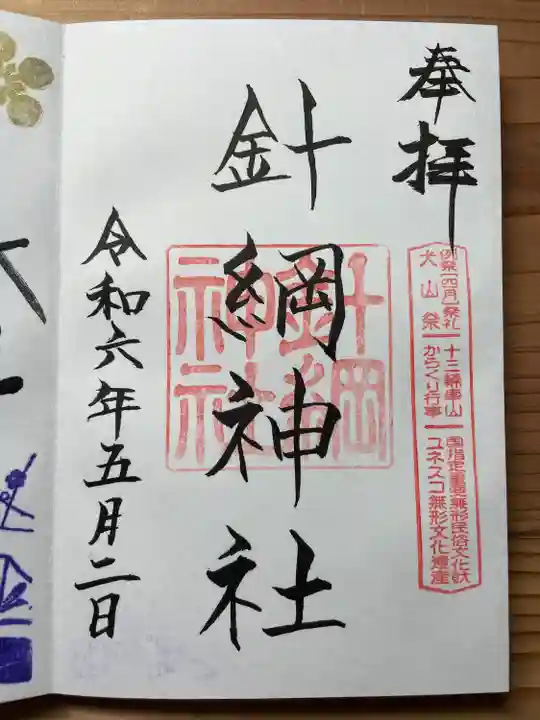 奉拝
例祭(四月)祭礼
犬山祭
十三輌車山
からくり行事
国指定重要無形民俗文化財
ユネスコ無形文化遺産
針綱神社
針綱
神社
令和六年五月二日